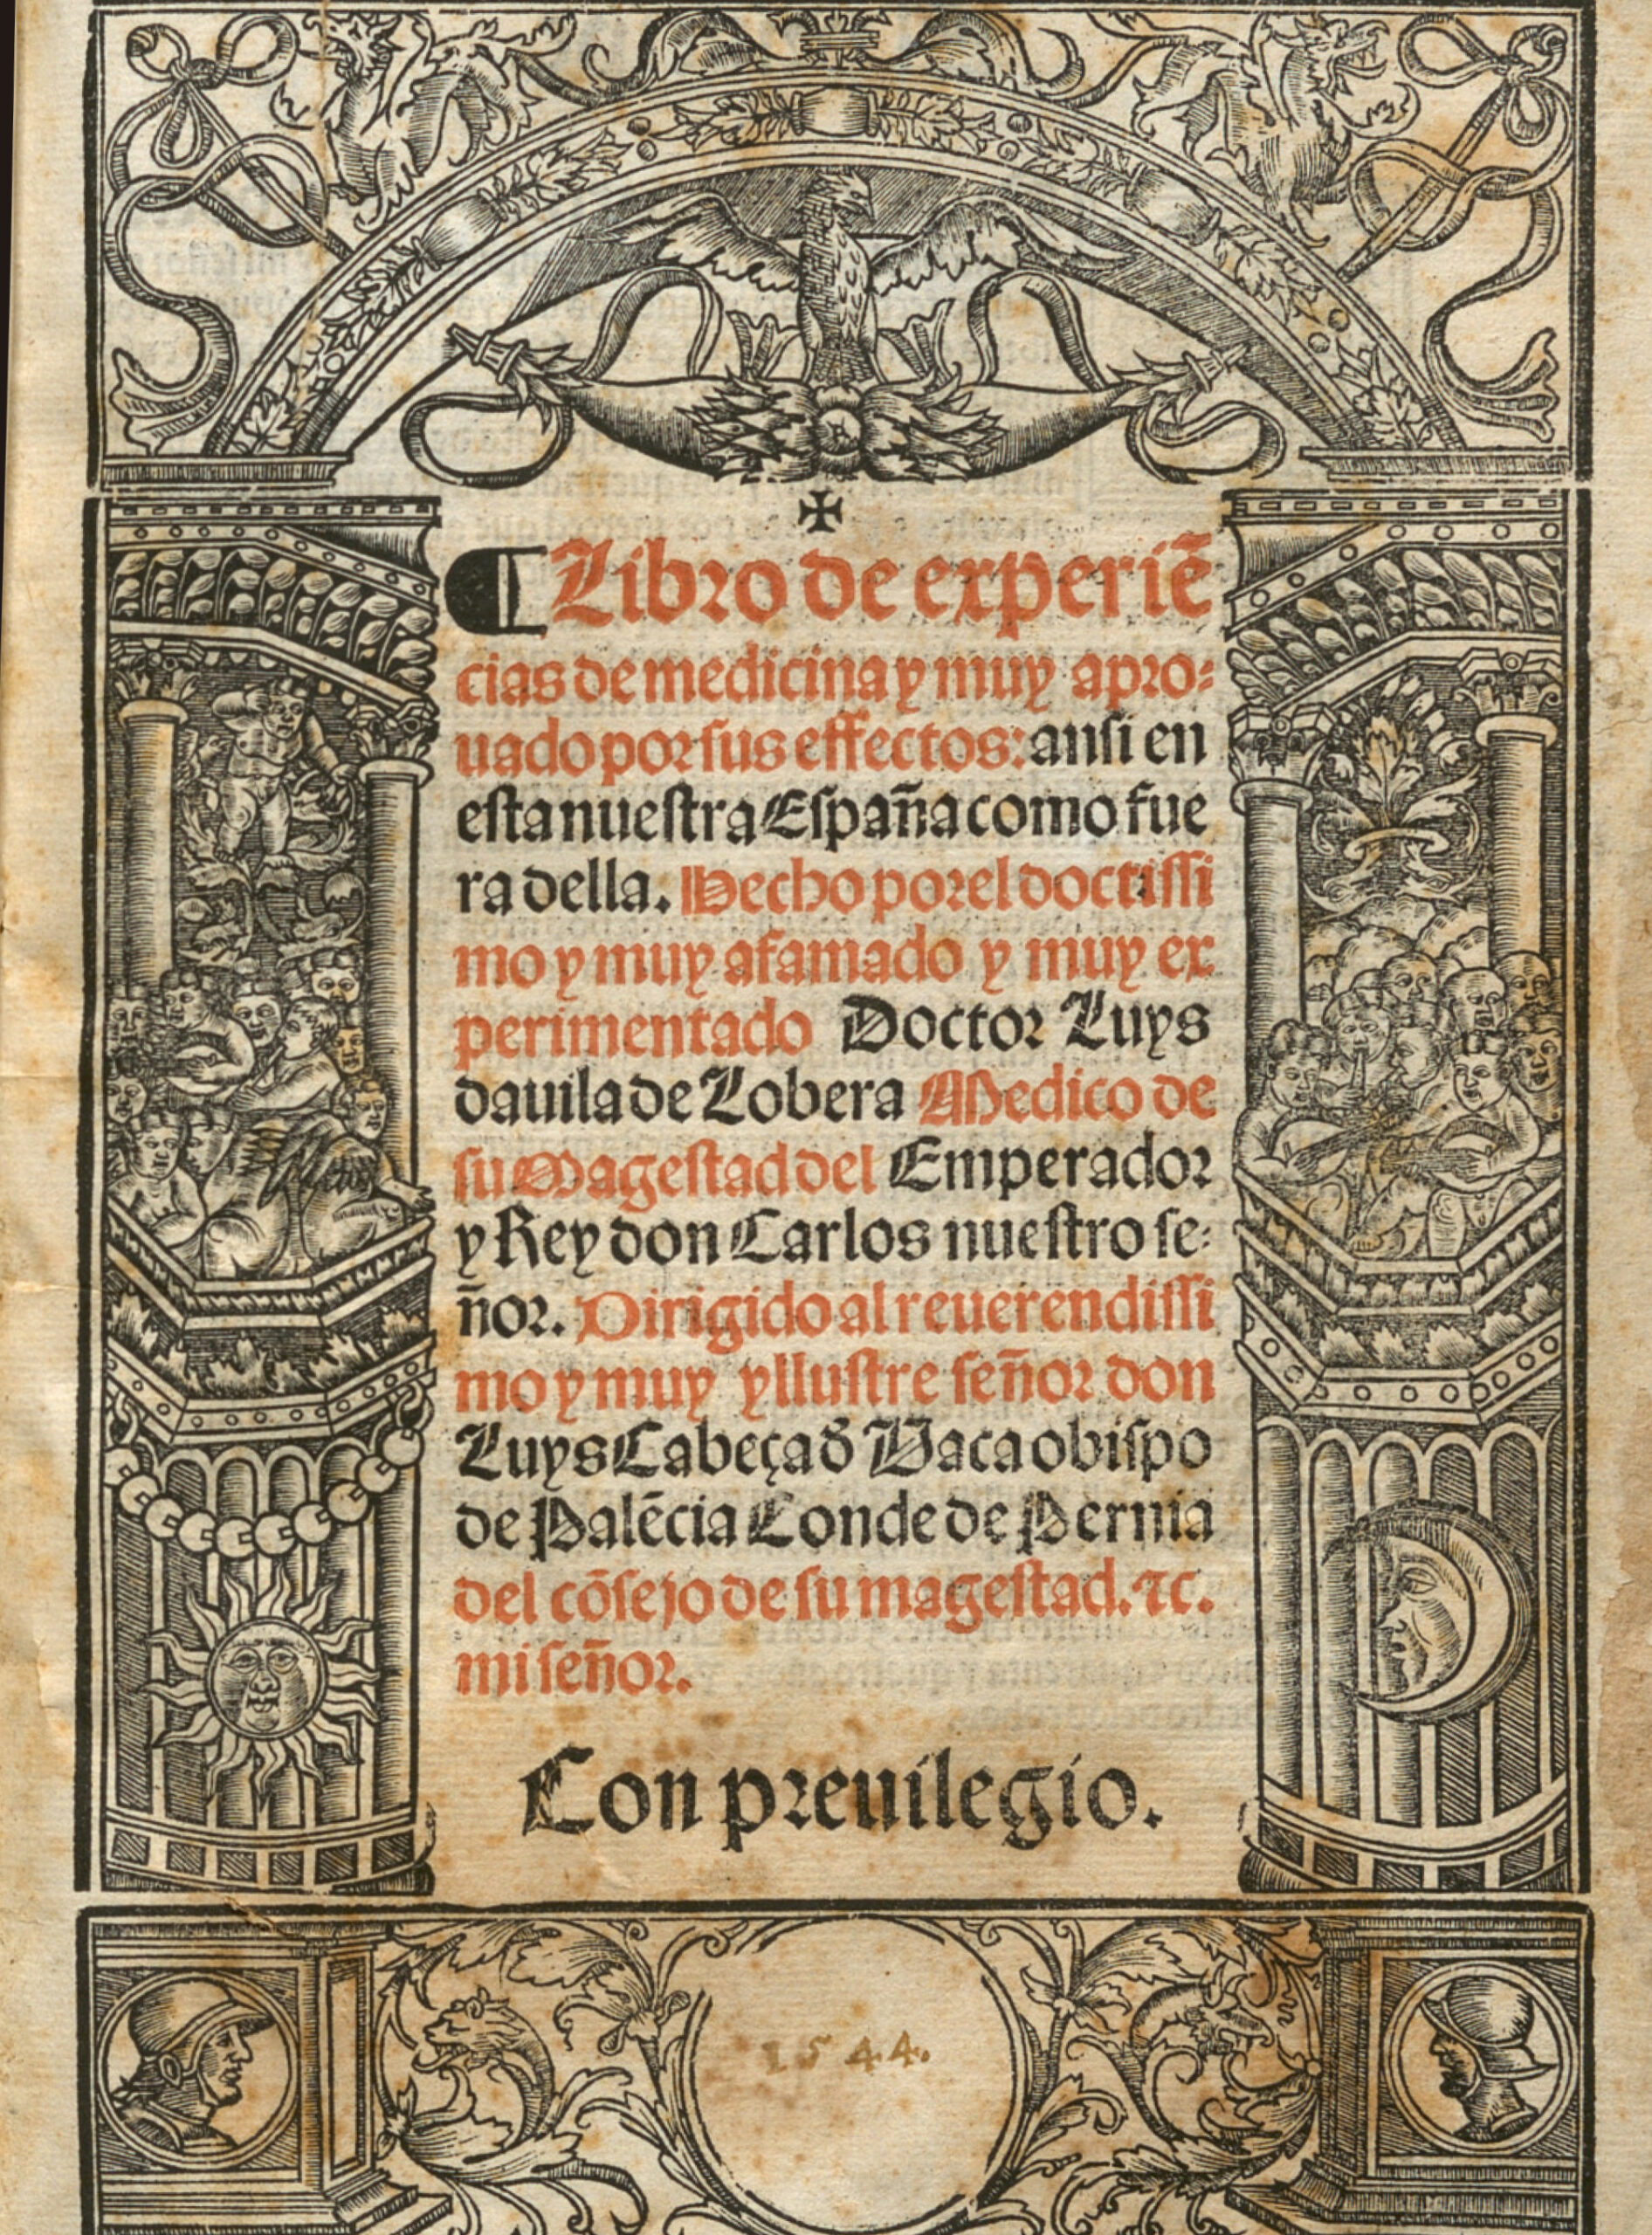 ✠
¶ Libro de experiē
cias de medicina y muy apro-
uado por sus effectos: ansi en
esta nuestra España como fue
ra della. Hecho por el doctissi
mo y muy afamado y muy ex
perimentado Doctor Luys
dauila de Lobera Medico de
su Magestad del Emperador
y Rey don Carlos nuestro se-
ñor. Dirigido al reuerendissi
mo y muy yllustre señor don
Luys Cabeça d̄ Uaca obispo
de Palēcia Conde de Pernia
del cōsejo de su magestad. ⁊c.
mi señor.
Con preuilegio.
1544.